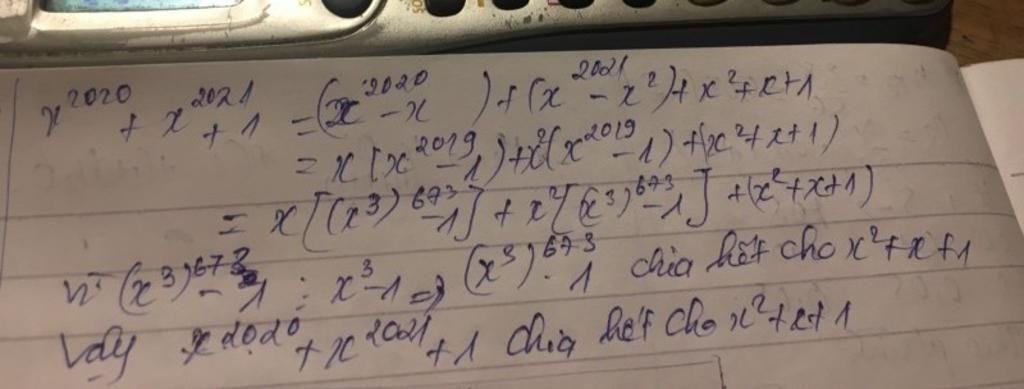 x²⁰²⁰ + x²⁰²¹ + 1 = (x²⁰²⁰ - x) + (x²⁰²¹ - x²) + x² + x + 1
= x(x²⁰¹⁹ - 1) + x²(x²⁰¹⁹ - 1) + (x² + x + 1)
= x[(x³)⁶⁷³ - 1] + x²[(x³)⁶⁷³ - 1] + (x² + x + 1)
Vì (x³)⁶⁷³ - 1 ⋮ x³ - 1 => (x³)⁶⁷³ - 1 chia hết cho x² + x + 1
Vậy x²⁰²⁰ + x²⁰²¹ + 1 chia hết cho x² + x + 1